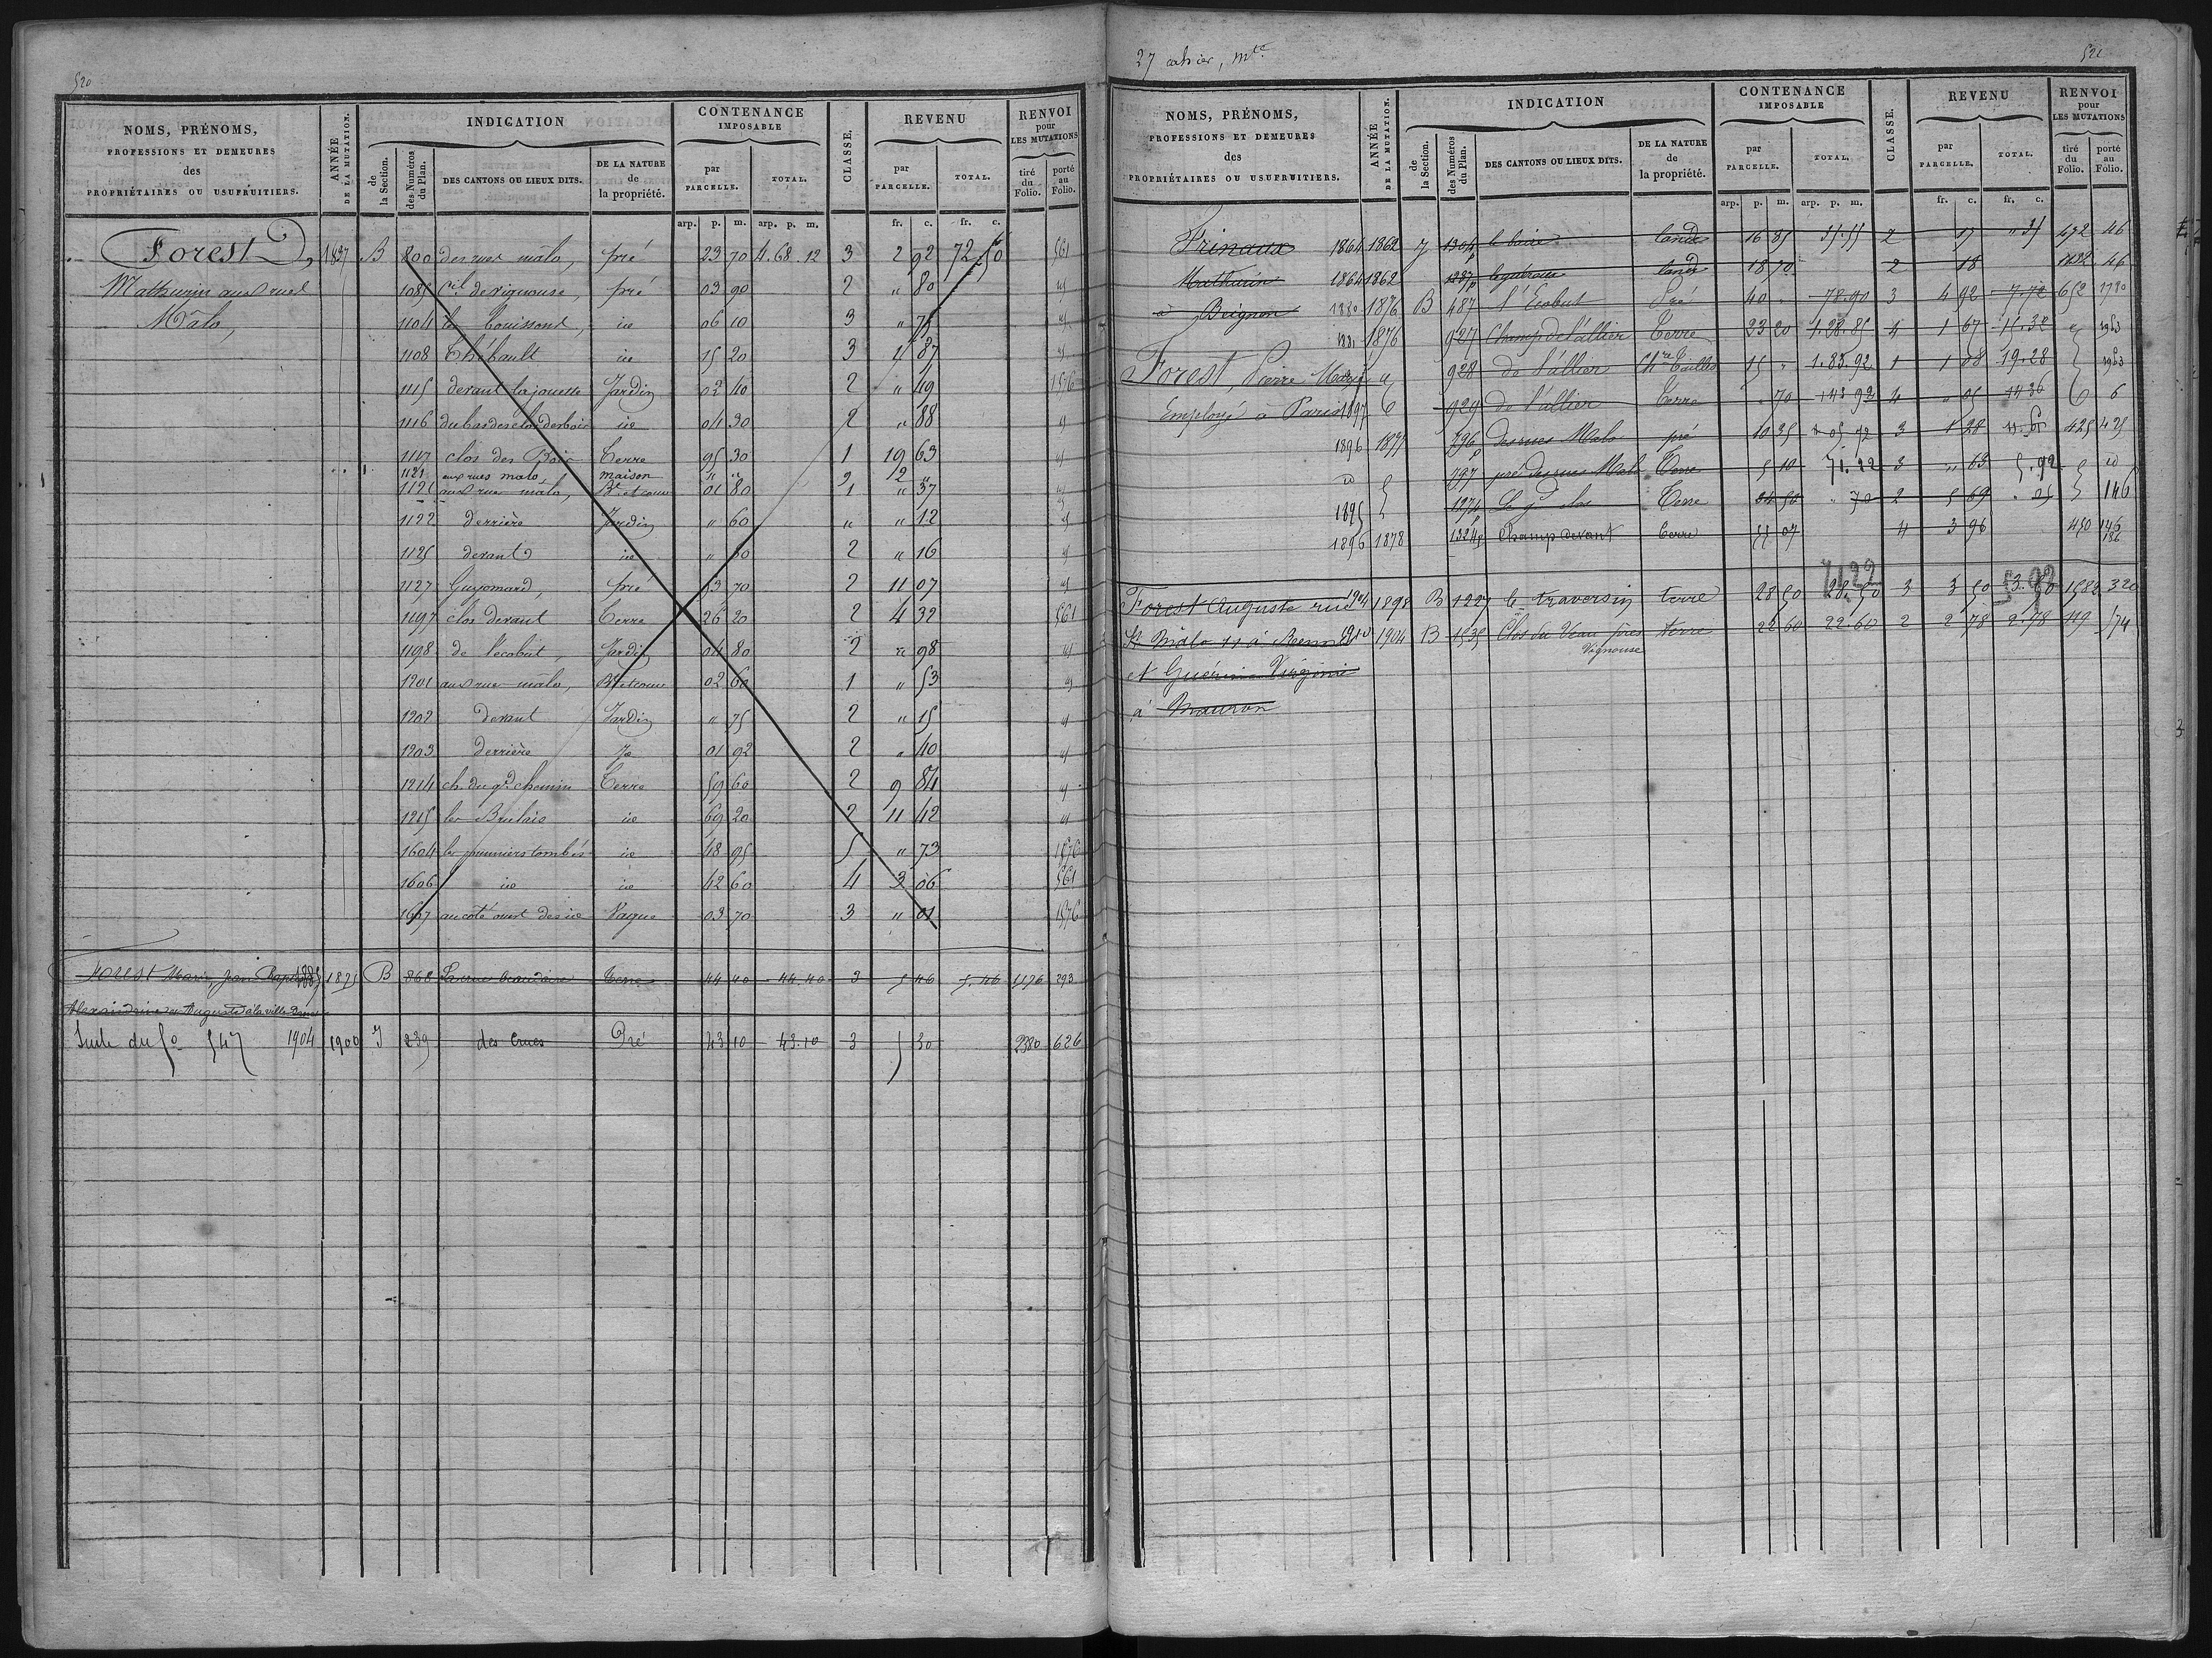 520
NOMS, PRÉNOMS, PROFESSIONS ET DEMEURES des PROPRIÉTAIRES OU USUFRUITIERS.
ANNÉE DE LA MUTATION.
INDICATION
de la Section.
des Numéros du Plan.
DES CANTONS OU LIEUX DITS.
DE LA NATURE de la propriété.
CONTENANCE IMPOSABLE
par PARCELLE.
TOTAL.
CLASSE.
REVENU
par PARCELLE.
TOTAL.
RENVOI pour LES MUTATIONS
tiré du Folio.
porté au Folio.
arp. p. m. arp. p. m. fr. c. fr. c.
Forest 1837 B 800 des rues malo, pré 23 70 4.68.12 3 2 92 72 50 561
Mathurin aux rues 1085 de vignouse, pré 03 90 2 " 80
Malo, 1104 le bouissond, id 06 10 3 " 75
1108 Thébault id 15 20 3 4 87
1115 devant la jouette Jardin 02 40 2 " 49 1576
1116 du bas des clos des bois id 04 30 2 " 88
1117 clos des Bois Terre 95 30 1 19 63
1121 aux rues malo, maison " " 2 12 "
1121 aux rues malo, Bt et cour 01 80 1 " 37
1122 derrière Jardin " 60 " " 12
1125 devant id " 80 2 " 16
1127 Guyomard, pré 53 70 2 11 07
1197 clos devant Terre 26 20 2 4 32 561
1198 de l'ecobut, Jardin 04 80 2 " 98
1201 aux rues malo, Bt et cour 02 60 1 " 53
1202 devant Jardin " 75 2 " 15
1203 derrière id 01 92 2 " 40
1214 ch. du gd chemin Terre 59 60 2 9 84
1215 les Brulais id 69 20 2 11 42
1604 les id 48 95 5 " 73 1576
1606 id id 42 60 4 3 06 561
1607 au coté ouest des id Vague 03 70 3 " 01 1576
Forest Marie, Jean 1885 1875 B 868 Terre 44 40 44.40 3 5 46 5.46 1176 293
Alexandrine et Auguste à la ville
Suite du fo 547 1904 1900 J 239 des Crues Pré 43 10 43.10 3 5 30 2380 626
27 cahier, mte
521
NOMS, PRÉNOMS, PROFESSIONS ET DEMEURES des PROPRIÉTAIRES OU USUFRUITIERS.
ANNÉE DE LA MUTATION.
INDICATION
de la Section.
des Numéros du Plan.
DES CANTONS OU LIEUX DITS.
DE LA NATURE de la propriété.
CONTENANCE IMPOSABLE
par PARCELLE.
TOTAL.
CLASSE.
REVENU
par PARCELLE.
TOTAL.
RENVOI pour LES MUTATIONS
tiré du Folio.
porté au Folio.
arp. p. m. arp. p. m. fr. c. fr. c.
Frinaux 1864 1862 J 1304 lande 16 85 35.55 2 17 " 35 472 46
Mathurin 1864 1862 1287 lande 18 70 2 18 1432 46
à Beignon 1880 1876 B 487 l'Ecobut Pré 40 " 78.90 3 4 92 7.72 652 1780
1881 1876 927 Champ de l'allier Terre 23 20 4 1 67 15.32 1963
Forest, Pierre Marie 928 de l'allier Taillis 15 " 1.85.92 1 1 08 19.28 1963
Employé à Paris 1897 929 de l'allier Terre " 70 4 " 05 14 36 6
1896 1877 796 des rues Malo pré 10 35 3 1 28 425 425
797 pré des rues Malo Terre 5 10 71.22 3 " 63 5.92 id
1895 1274 Le gd clos Terre 34 50 " 70 2 5 69 " 05 146
1896 1878 1324 Champ devant Terre 55 07 4 3 96 450 146
186
Forest Auguste rue 1904 1898 B 1227 le traversin terre 28 50 28.50 3 3 50 3.50 1582 320
St Malo 11 à Rennes 1910 1904 B 1535 Clos du Veau près Vignouse terre 22 60 22.60 2 2 78 2.78 119 574
et Guérin Virginie
à Mauron